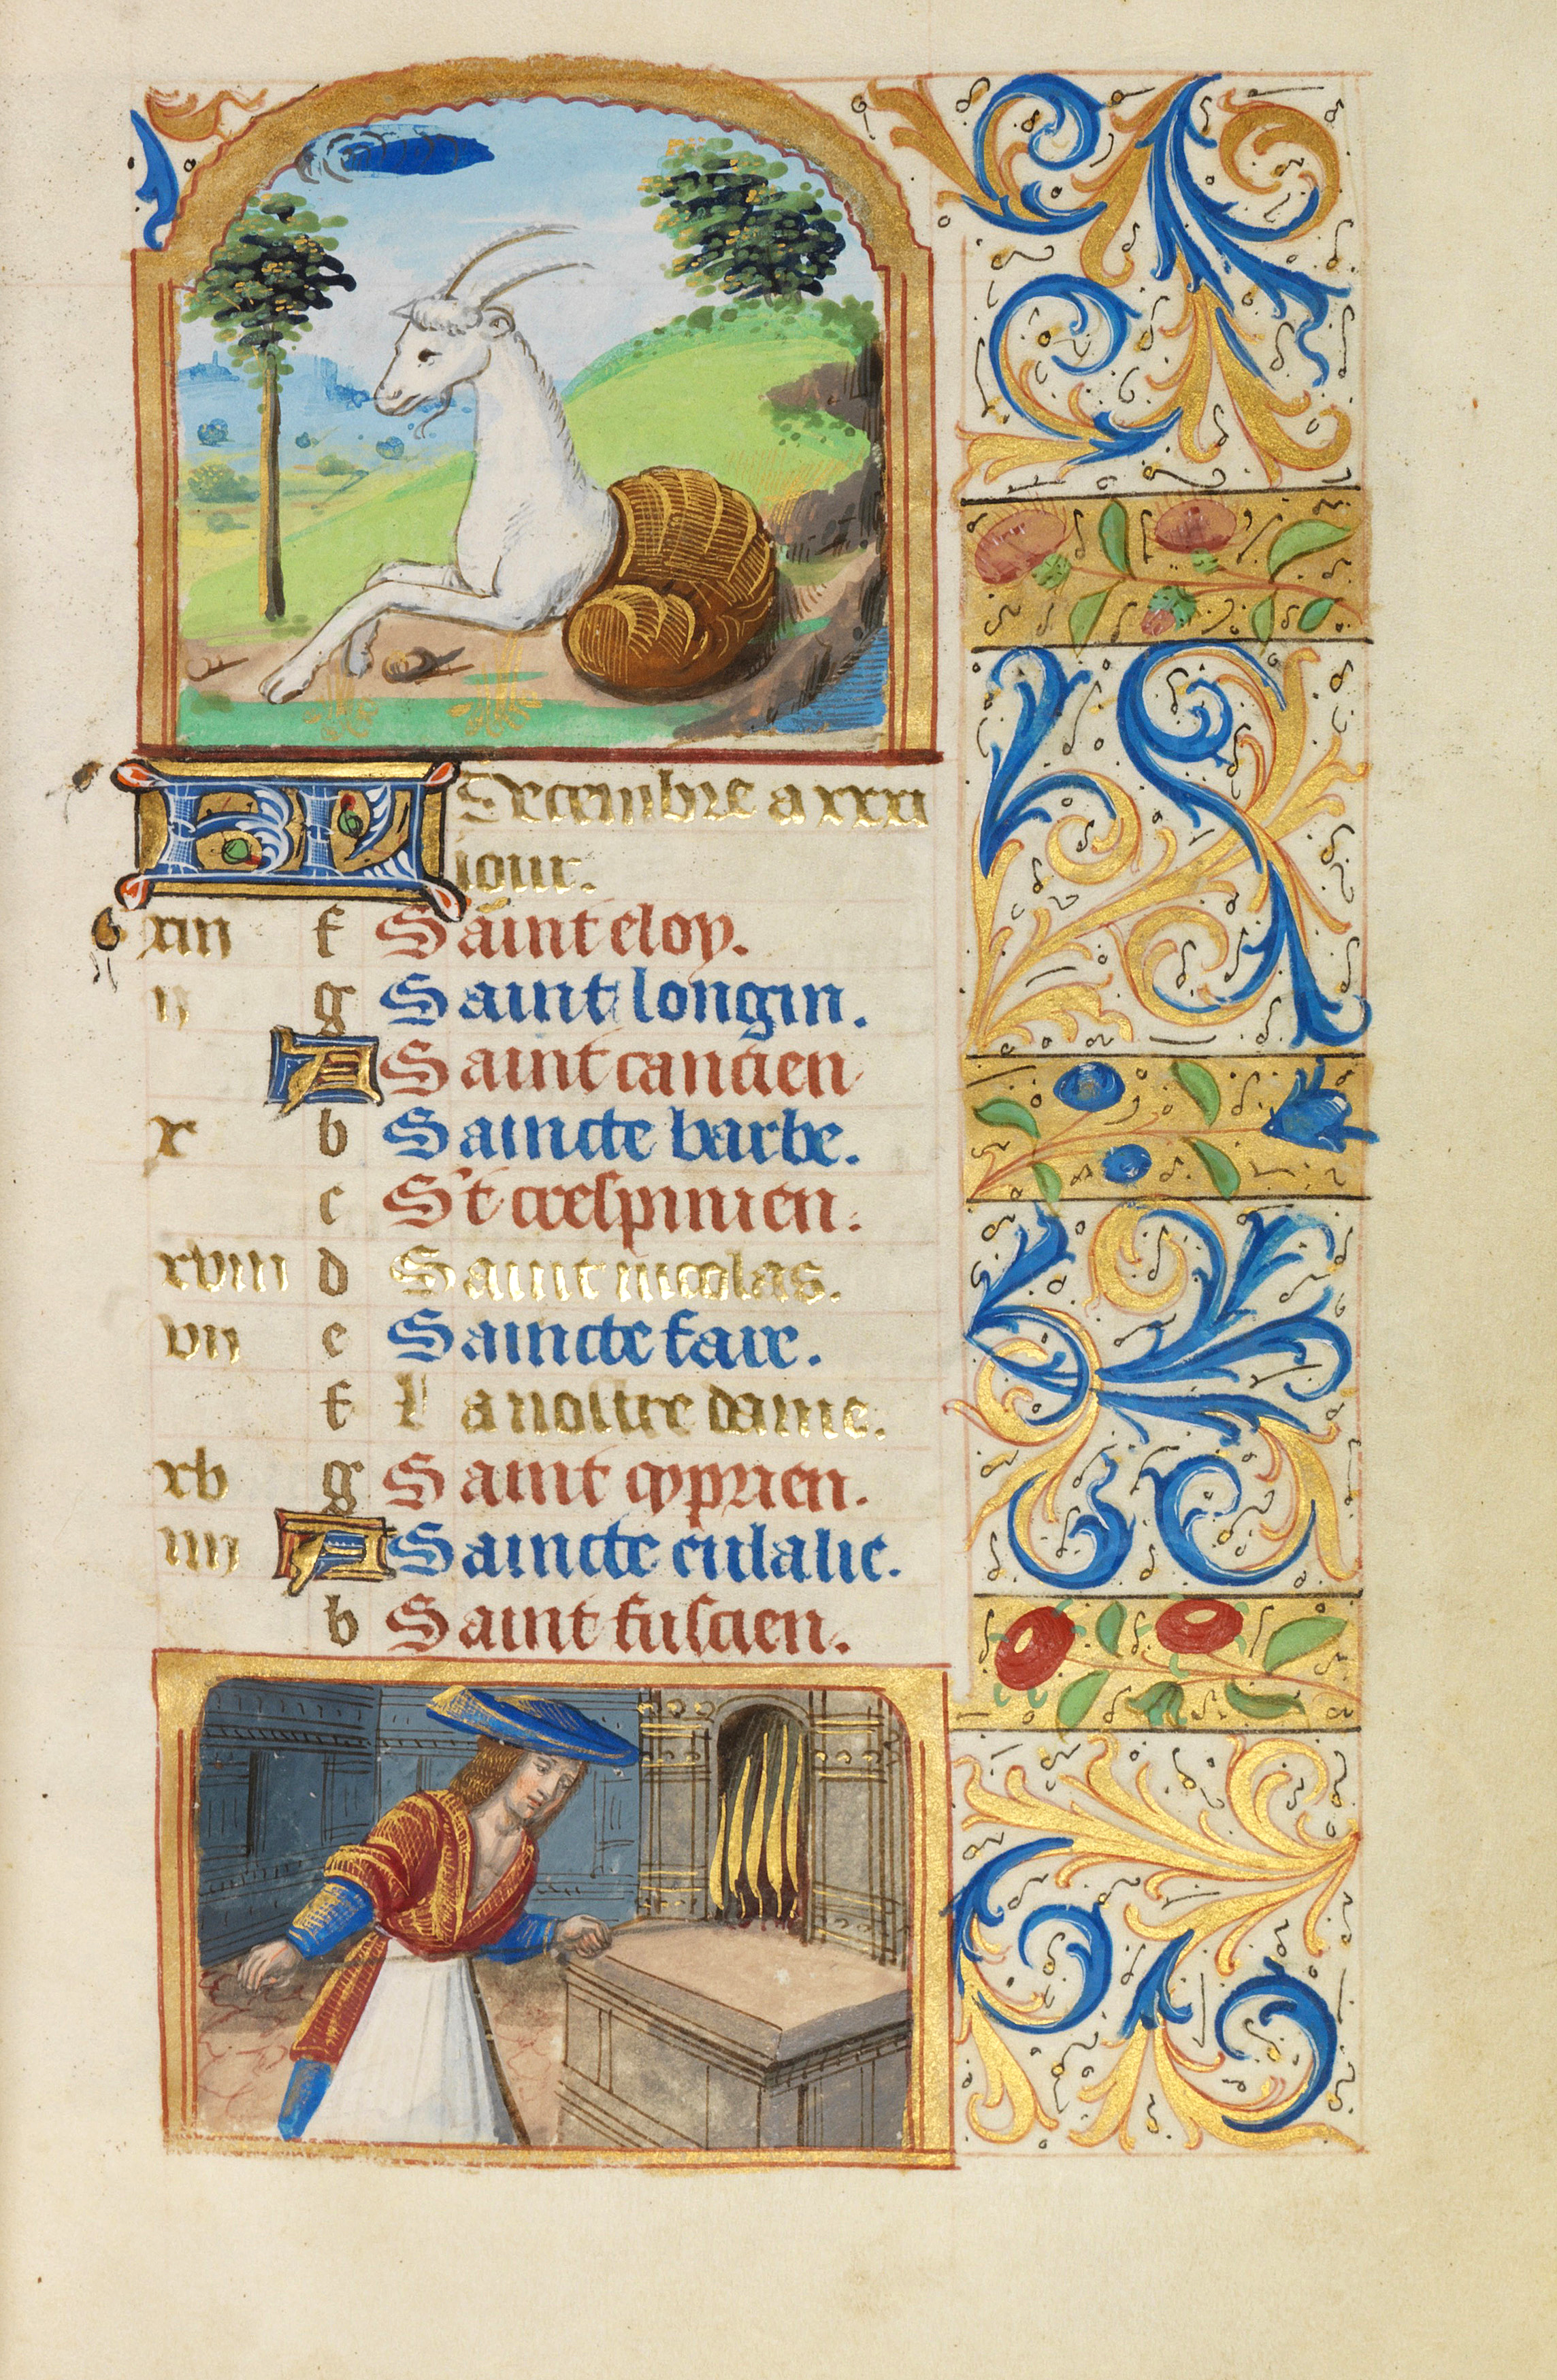 KL Decembre a xxxi
iour.
xiii f Saint eloy.
ii g Saint longin.
A Saint cancien
x b Saincte barbe.
c St crespinien.
xviii d Saint nicolas.
vii e Saincte faire.
f La nostre dame.
xv g Saint cyprien.
iiii A Saincte eulalie.
b Saint fuscien.